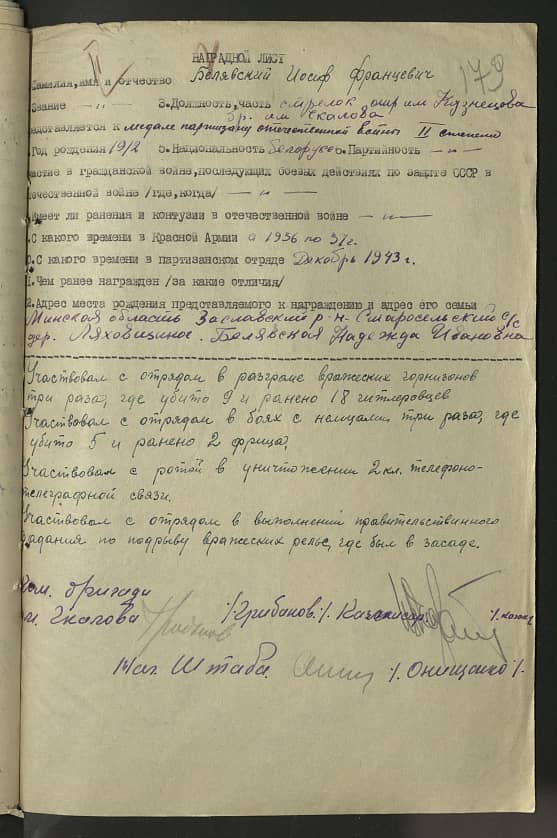 НАГРАДНОЙ ЛИСТ
II
179
Фамилия, имя и отчество Белявский Иосиф Францевич
Звание —"— 3. Должность, часть стрелок отр им Кузнецова
бр. им Чкалова
едставляется к медале партизану отечественной войны II степени
Год рождения 1912 5. Национальность Белорус 6. Партийность —н—
частие в гражданской войне, последующих боевых действиях по защите СССР в
течественной войне /где, когда/ —н—
Имеет ли ранения и контузии в отечественной войне —н—
.С какого времени в Красной Армии с 1936 по 37г.
0.С какого времени в партизанском отряде Декабрь 1943 г.
I.Чем ранее награжден /за какие отличия/
2.Адрес места рождения представляемого к награждению и адрес его семьи
Минская область Заславский р-н. Старосельский с/с
дер. Ляховщина. Белявская Надежда Ивановна
Участвовал с отрядом в разгроме вражеских горнизонов
три раза, где убито 9 и ранено 18 гитлеровцев
Участвовал с отрядом в боях с немцами три раза, где
убито 5 и ранено 2 фрица,
Участвовал с ротой в уничтожении 2 кл. телефоно-
телеграфной связи.
Участвовал с отрядом в выполнений правительственного
задания по подрыву вражеских рельс, где был в засаде.
Ком. бригади
им. Чкалова /Грибанов./ Комиссар
Нач. Штаба. /. Онищенко /.